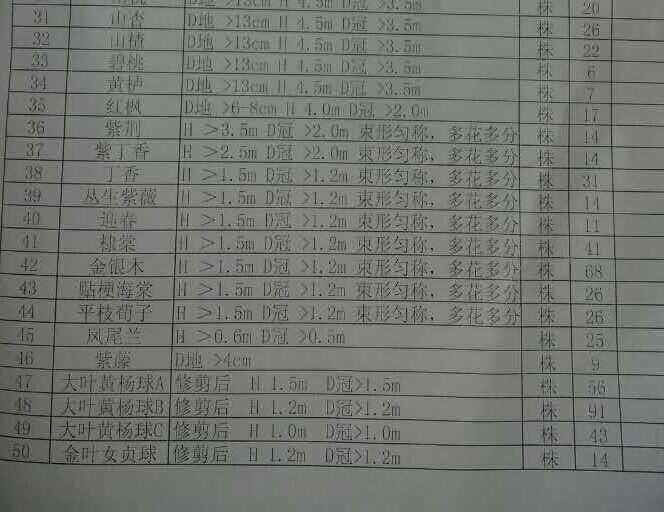 D地 >13cm H 4.5m D冠 >3.5m 株 20
31 山杏 D地 >13cm H 4.5m D冠 >3.5m 株 26
32 山楂 D地 >13cm H 4.5m D冠 >3.5m 株 22
33 碧桃 D地 >13cm H 4.5m D冠 >3.5m 株 6
34 黄栌 D地 >13cm H 4.5m D冠 >3.5m 株 7
35 红枫 D地 >6-8cm H 4.0m D冠 >2.0m 株 17
36 紫荆 H >3.5m D冠 >2.0m 束形匀称，多花多分 株 14
37 紫丁香 H >2.5m D冠 >2.0m 束形匀称，多花多分 株 14
38 丁香 H >1.5m D冠 >1.2m 束形匀称，多花多分 株 31
39 丛生紫薇 H >1.5m D冠 >1.2m 束形匀称，多花多分 株 14
40 迎春 H >1.5m D冠 >1.2m 束形匀称，多花多分 株 11
41 棣棠 H >1.5m D冠 >1.2m 束形匀称，多花多分 株 41
42 金银木 H >1.5m D冠 >1.2m 束形匀称，多花多分 株 68
43 贴梗海棠 H >1.5m D冠 >1.2m 束形匀称，多花多分 株 26
44 平枝荀子 H >1.5m D冠 >1.2m 束形匀称，多花多分 株 26
45 凤尾兰 H >0.6m D冠 >0.5m 株 25
46 紫藤 D地 >4cm 株 9
47 大叶黄杨球A 修剪后 H 1.5m D冠>1.5m 株 56
48 大叶黄杨球B 修剪后 H 1.2m D冠>1.2m 株 91
49 大叶黄杨球C 修剪后 H 1.0m D冠>1.0m 株 43
50 金叶女贞球 修剪后 H 1.2m D冠>1.2m 株 14